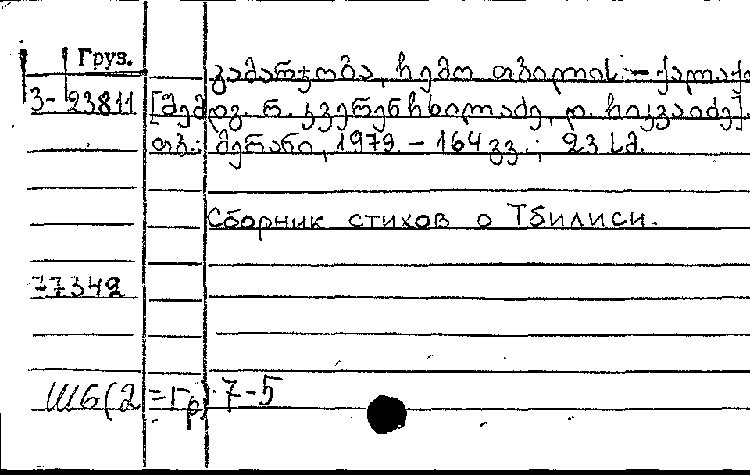 Груз.
გამარჯობა, ჩემო თბილის - ქალაქო
3- 23811 [შემდგ. ნ. კვერენჩხილაძე, დ. ჩიკვაიძე].
თბ.: მერანი, 1979. - 164 გვ.; 23 სმ.
Сборник стихов о Тбилиси.
77342
Ш6(2=Гр) 7-5